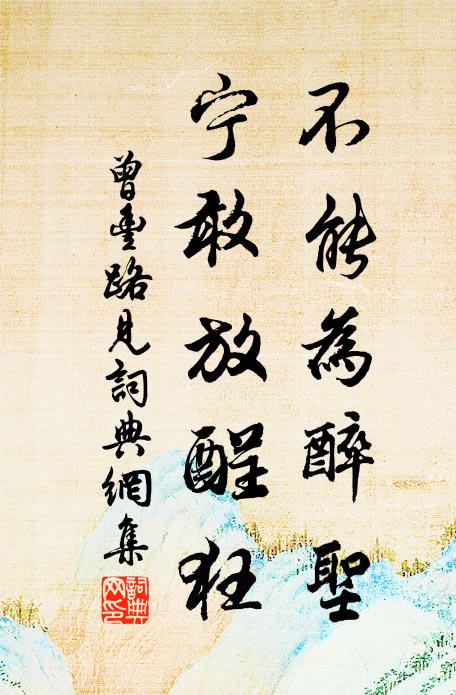 不能為醉聖
宁敢放醒狂
曾豊路見詞典網集
詞典网印